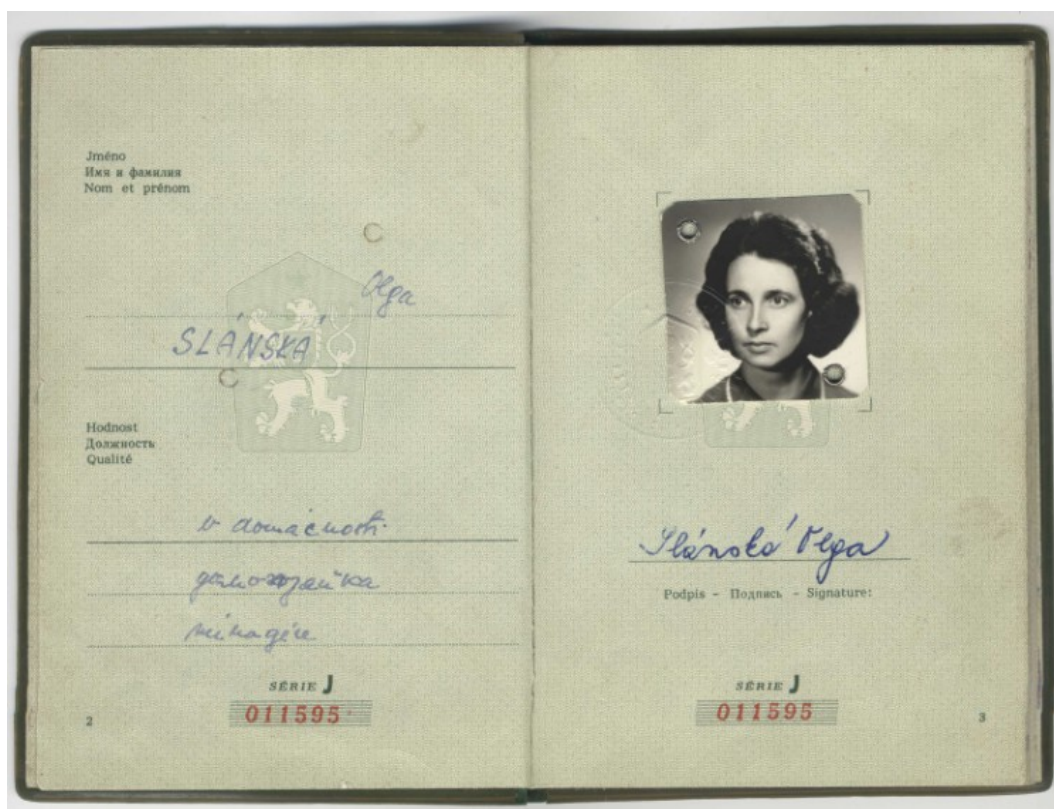 Jméno
Имя и фамилия
Nom et prénom
Olga
SLÁNSKÁ
Hodnost
Должность
Qualité
v domácnosti
домохозяйка
ménagère
SÉRIE J
011595
2
Slánská Olga
Podpis - Подпись - Signature:
SÉRIE J
011595
3